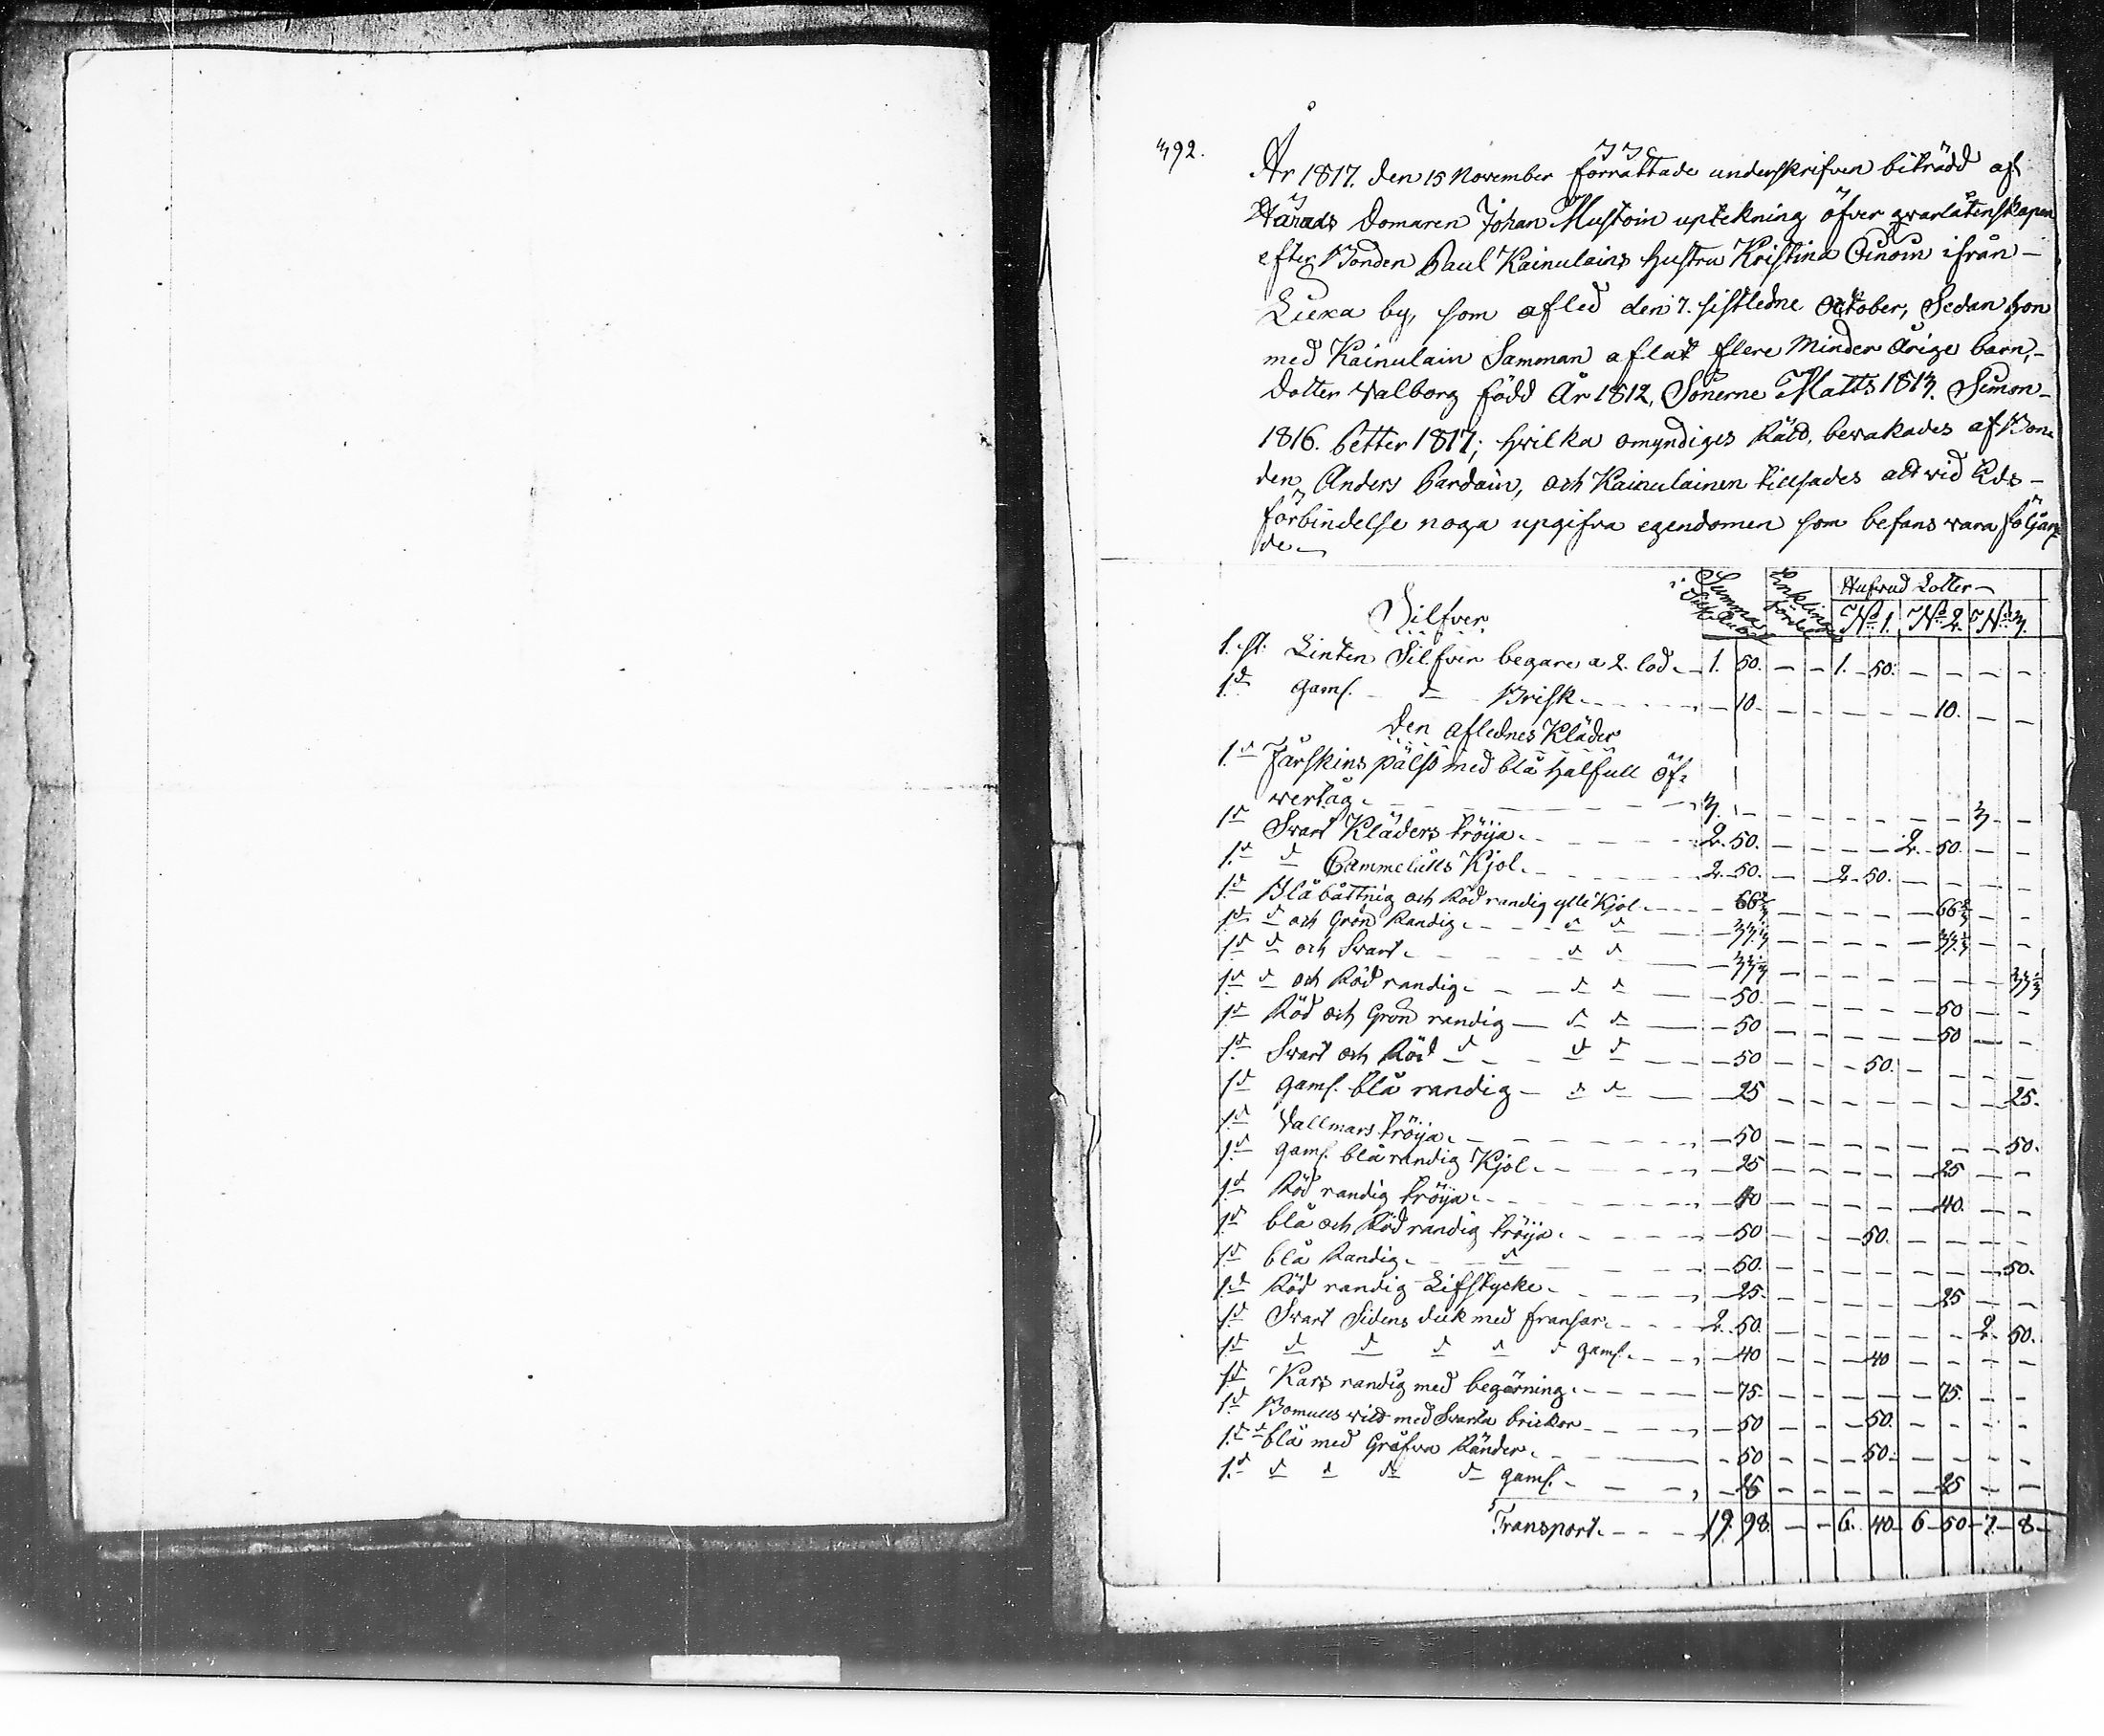 392.
År 1817. den 15 November förrättade underskrifven biträdd af
Härads Domaren Johan Mustoin uptekning öfver qvarlåtenskapen
efter Bonden Paul Kainulains hustru Kristina Oinoin ifrån –
Liexa by, som afled den 7. sistledne October, Sedan hon
med Kainulain Samman aflat flere Minder Årige barn, –
dotter Walborg född År 1812, Sönerne Matts 1813. Simon –
1816. Petter 1817; hvilka omyndiges Rätt, bevakades af Bon-
den Anders Pardain, och Kainulainen tillsades att wid Eds –
förbindelse noga upgifva egendomen som befans vara följan-
de –
Summa i Silf. Rubel
Enklings fördel
Hufvud Lotter –
No 1. No 2. No 3.
Silfver
1. st. Liten Silfver begare a 2. lod – 1. 50. – – 1. 50. – – – –
1 d gaml. d Brisk – – 10. – – – – – 10. – –
Den aflednes Kläder
1 d Fårskins päls med blå halfull öf-
wertåg – 3. – – – – – – – 3 – –
1 d Svart Kläders tröija – 2. 50. – – – – 2. 50. – –
1 d d Cammelåtts Kjol – 2. 50. – – 2. 50. – – – –
1 d Blå båttnig och Röd randig ylle Kjol – 66 2/3 – – – – – 66 2/3 – –
1 d d och Grön Randig – d d – 33 1/3 – – – – – 33 1/3 – –
1 d d och Svart – d d – 33 1/3 – – – – – – – 33 1/3
1 d d och Röd randig – d d – 50. – – – – – 50 – –
1 d Röd och Grön randig – d d – 50 – – – – – 50 – –
1 d Svart och Röd d – d d – 50 – – – 50. – – – –
1 d gaml. blå randig – d d – 25 – – – – – – – 25.
1 d Vallmars tröija – 50 – – – – – – – 50.
1 d gaml. blå randig Kjol – 25 – – – – – 25 – –
1 d Röd randig tröija – 40 – – – – – 40. – –
1 d blå och Röd randig tröija – 50 – – – 50. – – – –
1 d blå Randig – d – 50. – – – – – – – 50.
1 d Röd randig Lifstycke – 25. – – – – – 25 – –
1 d Svart Sidens duk med fransar – 2. 50. – – – – – – 2. 50.
1 d d d d d d gaml. – 40 – – – 40 – – – –
1 d Kars randig med begärning – 75. – – – – – 75. – –
1 d Bomulls wit med Svarta brickor – 50 – – – 50. – – – –
1 d d blå med Gråfva Ränder – 50 – – – 50. – – – –
1 d d d d d gaml. – 25 – – – – – 25 – –
Transport – 19. 98. – – 6. 40. 6 50 7. 8 –